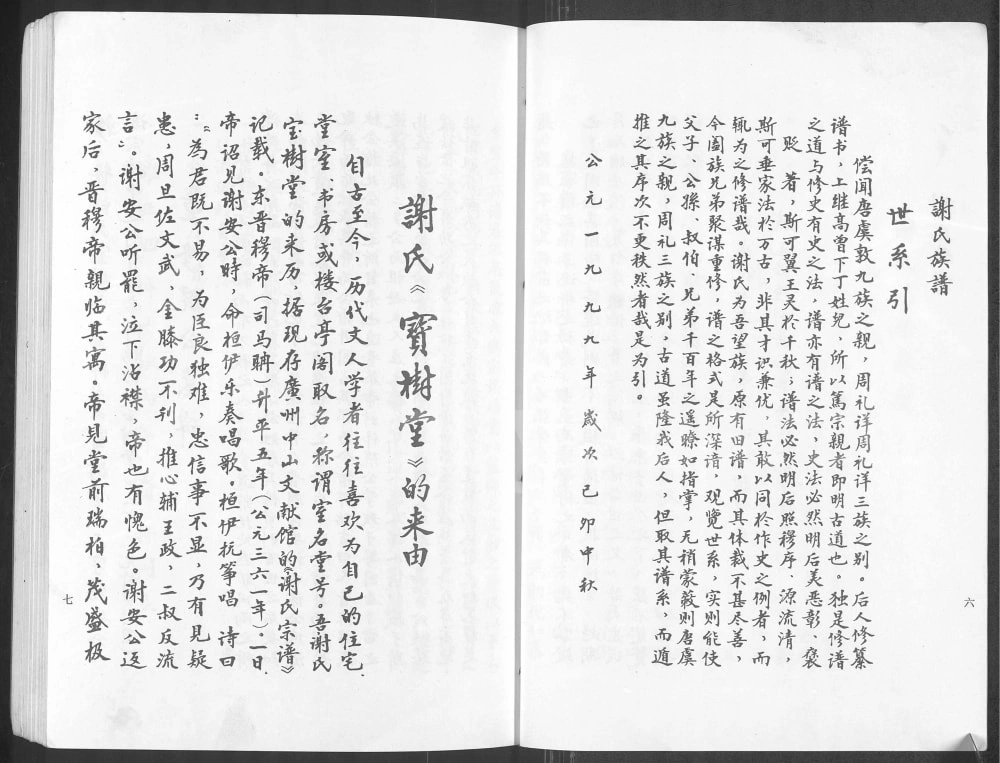 謝氏族譜
世系引
偿闻唐虞敦九族之親，周礼详周礼详三族之别。后人修纂
谱书，上继高曾下丁姓兒，所以篤宗親者即明古道也。独是修谱
之道与修史有史之法，谱亦有谱之法，史法必然明后美恶彰、褒
贬　著，斯可翼王灵於千秋；谱法必然明后照穆序．源流清，
斯可垂家法於万古，非其才识兼优，其敢以同於作史之例者，而
辄为之修谱哉。谢氏为吾望族，原有旧谱，而其体裁不甚尽善，
今阖族兄弟聚谋重修，谱之格式是所深谙，观览世系，实则能使
父子、公孫、叔伯、兄弟千百年之遥瞭如指掌，无稍蒙蔽则唐虞
九族之親，周礼三族之别，古道虽隆我后人，但取其谱系，而遁
推之其序次不更秩然者哉是为引。
公元一九九九年，歲次己卯中秋
六
謝氏《寶樹堂》的来由
自古至今，历代文人学者往往喜欢为自己的住宅．
堂室、书房或楼台亭阁取名，称谓室名堂号。吾谢氏
宝樹堂的来历，据现存廣州中山文献馆的《谢氏宗谱》
记载。东晋穆帝（司马聃）升平五年（公元三六一年）．一日．
帝诏见谢安公時，命桓伊乐奏唱歌。桓伊抚筝唱　诗曰
：“為君既不易，为臣良独难，忠信事不显，乃有見疑
患，周旦佐文武，金滕功不刊，推心辅王政，二叔反流
言”。谢安公听罷，泣下沾襟，帝也有愧色。谢安公返
家后，晋穆帝親临其寓。帝見堂前瑞柏，茂盛极
七